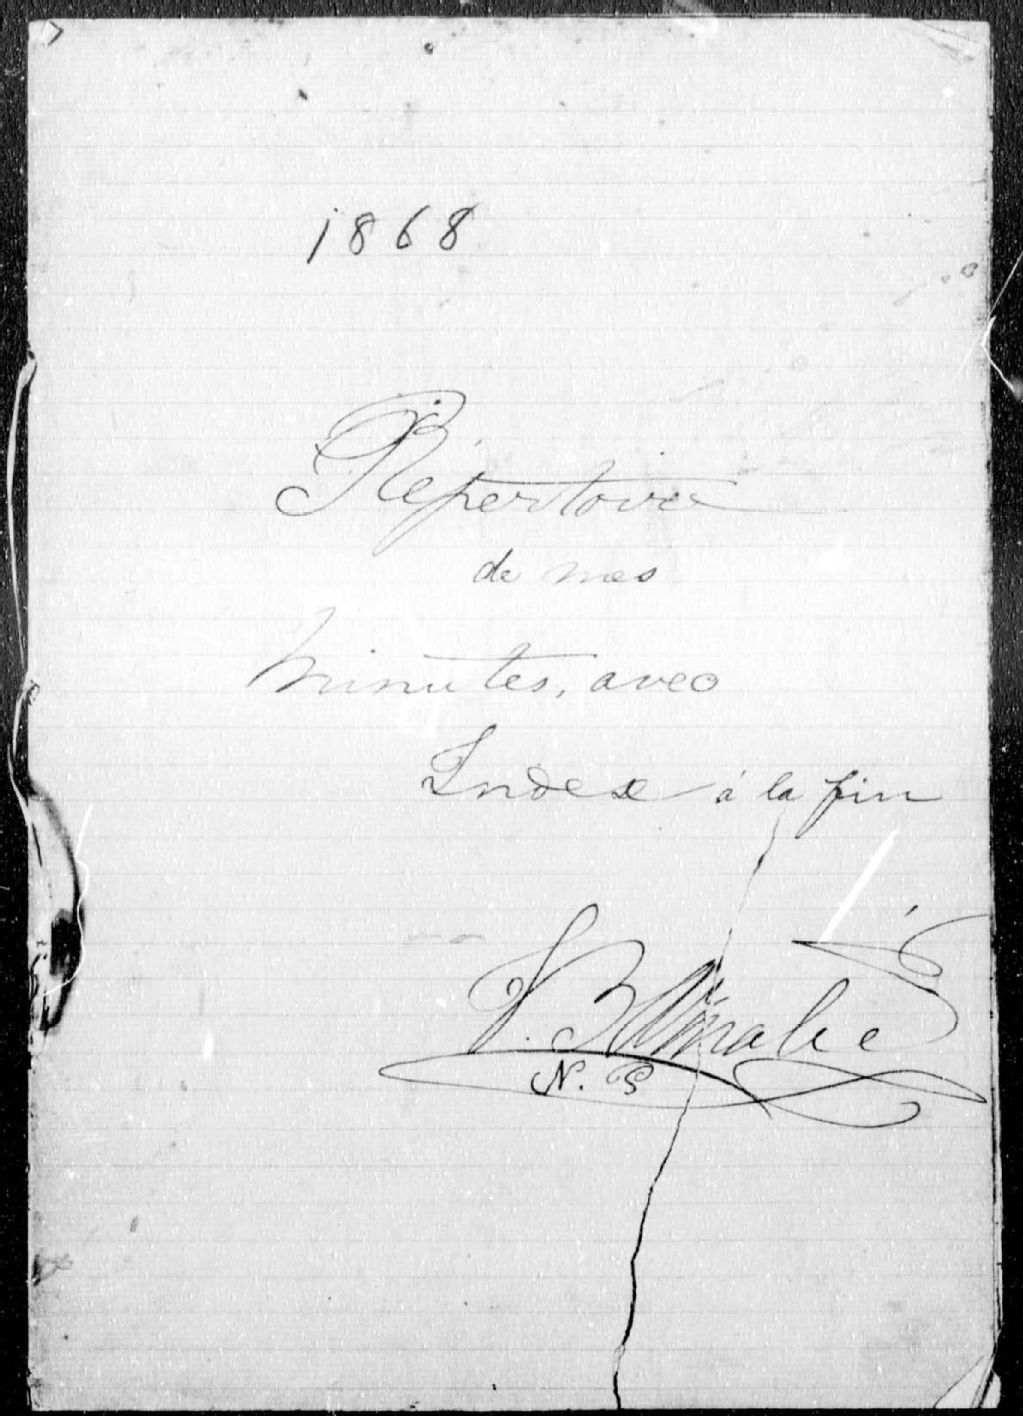 1868
Répertoire
de mes
minutes, avec
Index à la fin
N. P